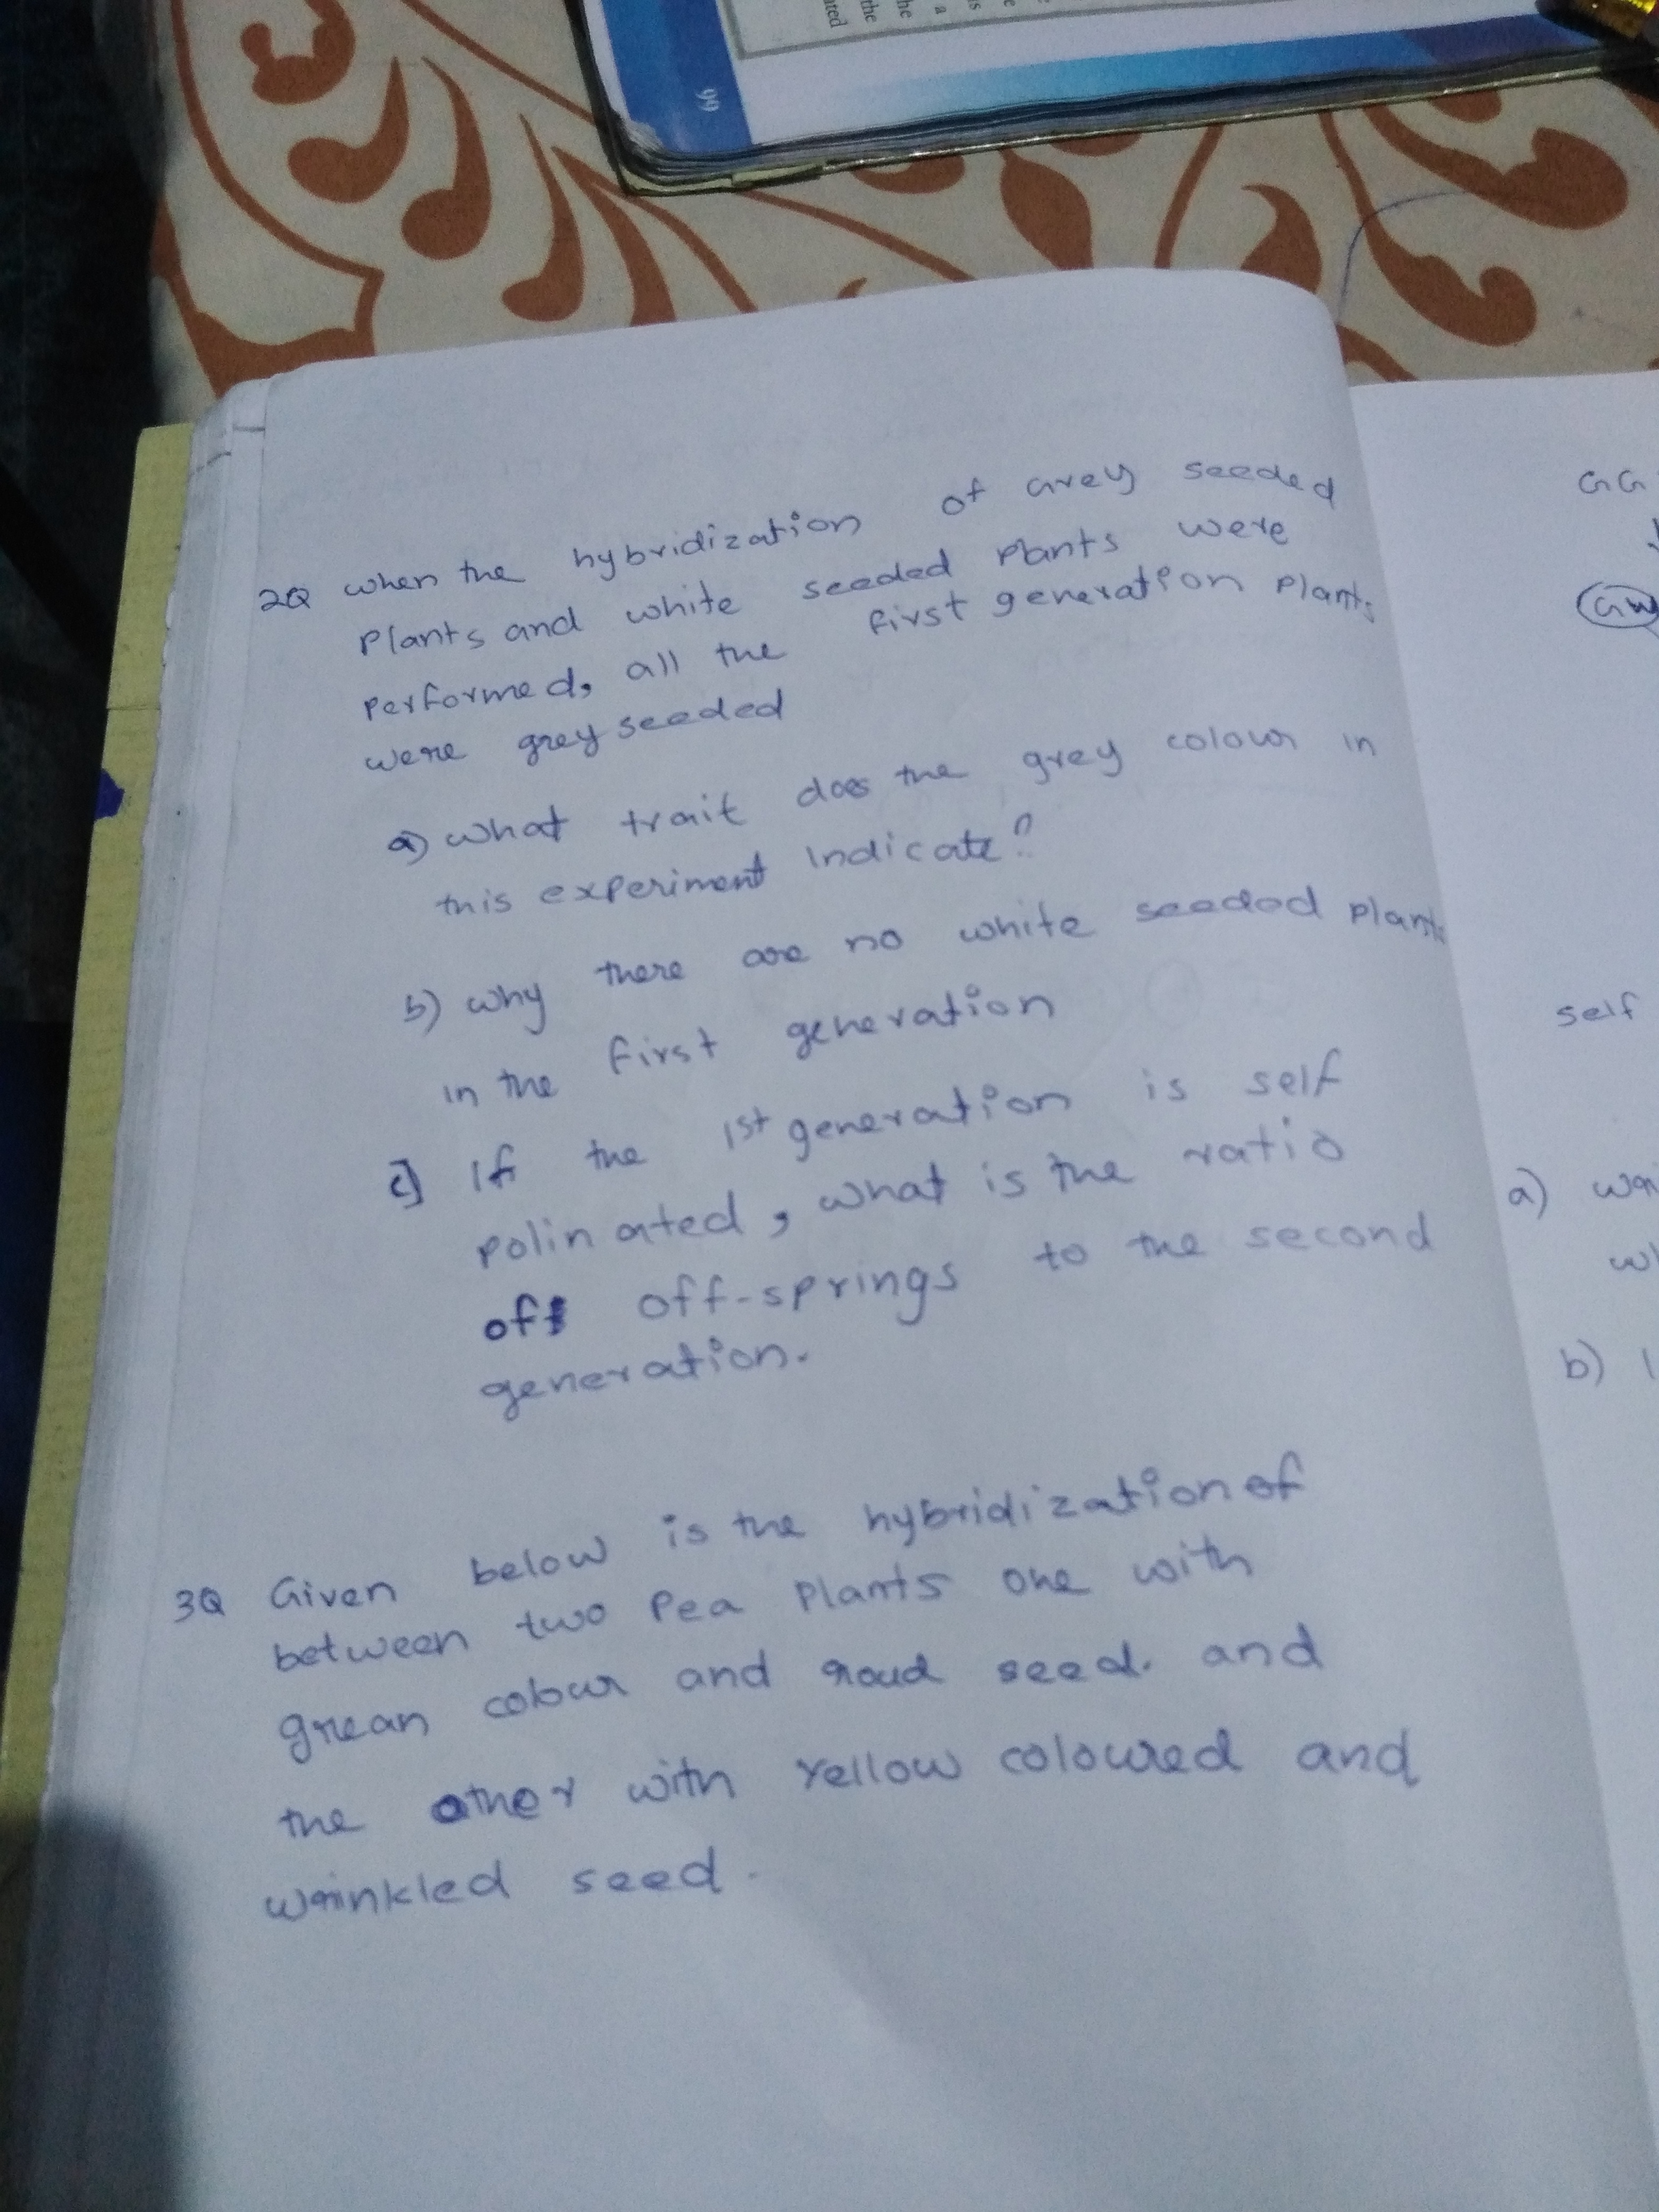 ated
the
he
a
is
e
99
2Q when the hybridization of Grey seeded
Plants and white seeded Plants were
Performed, all the first generation Plants
were grey seeded
a) what trait does the grey colour in
this experiment indicate?
b) why there are no white seeded plants
in the first generation
c] If the 1st generation is self
polinated, what is the ratio
of off-springs to the second
generation.
3Q Given below is the hybridization of
between two Pea Plants one with
grean colour and roud seed. and
the other with Yellow coloured and
wrinkled seed.
GG
GW
self
a)
b)